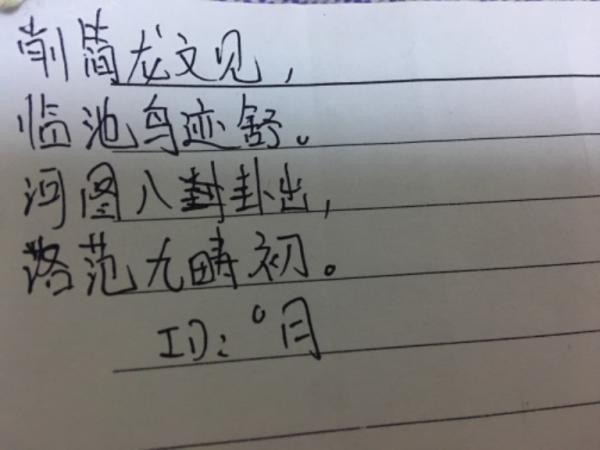 削简龙文见，
临池鸟迹舒。
河图八卦出，
洛范九畴初。
ID：°月